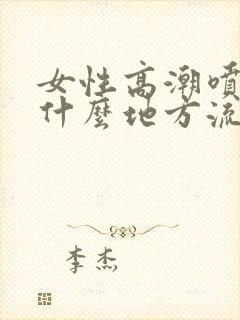 女性高潮噴
什麼地方流
李杰